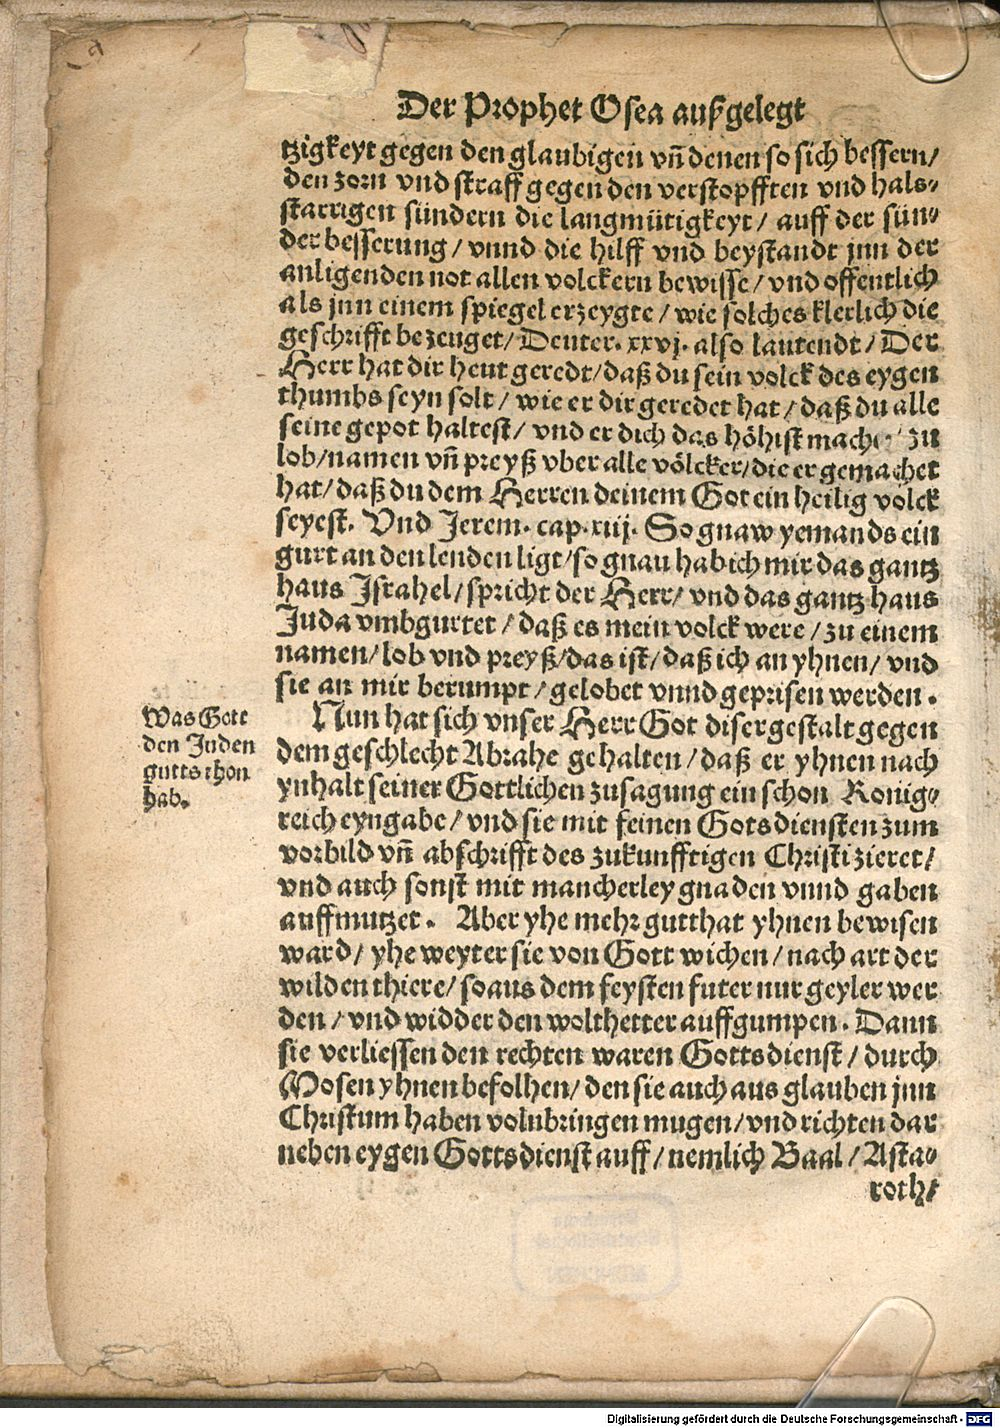 Der Prophet Osea außgelegt
tzigkeyt gegen den glaubigen vñ denen so sich bessern/
den zorn vnd straff gegen den verstopfften vnd hals-
starrigen sündern die langmütigkeyt/ auff der sün-
der besserung/ vnnd die hilff vnd beystandt jnn der
anligenden not allen volckern bewisse/ vnd offentlich
als jnn einem spiegel erzeygte/ wie solches klerlich die
geschrifft bezeuget/ Deuter. xxvj. also lautendt/ Der
Herr hat dir heut geredt/ daß du sein volck des eygen
thumbs seyn solt/ wie er dir geredet hat/ daß du alle
seine gepot haltest/ vnd er dich das höhist mache zu
lob/ namen vñ preyß vber alle völcker/ die er gemachet
hat/ daß du dem Herren deinem Got ein heilig volck
seyest. Vnd Jerem. cap. xiij. So gnaw yemands ein
gurt an den lenden ligt/ so gnau hab ich mir das gantz
haus Jsrahel/ spricht der Herr/ vnd das gantz haus
Juda vmbgurtet/ daß es mein volck were/ zu einem
namen/ lob vnd preyß/ das ist/ daß ich an yhnen/ vnd
sie an mir berumpt/ gelobet vnnd geprisen werden.
Was Gott
den Juden
guts thon
hab.
Nun hat sich vnser Herr Got disergestalt gegen
dem geschlecht Abrahe gehalten/ daß er yhnen nach
ynhalt seiner Gottlichen zusagung ein schon Konig-
reich eyngabe/ vnd sie mit feinen Gotsdiensten zum
vorbild vñ abschrifft des zukunfftigen Christi zieret/
vnd auch sonst mit mancherley gnaden vnnd gaben
auffmutzet. Aber yhe mehr gutthat yhnen bewisen
ward/ yhe weyter sie von Gott wichen/ nach art der
wilden thiere/ so aus dem feysten futer nur geyler wer
den/ vnd widder den wolthetter auffgumpen. Dann
sie verliessen den rechten waren Gottsdienst/ durch
Mosen yhnen befolhen/ den sie auch aus glauben jnn
Christum haben volnbringen mugen/ vnd richten dar
neben eygen Gottsdienst auff/ nemlich Baal/ Asta-
roth/
Digitalisierung gefördert durch die Deutsche Forschungsgemeinschaft - DFG